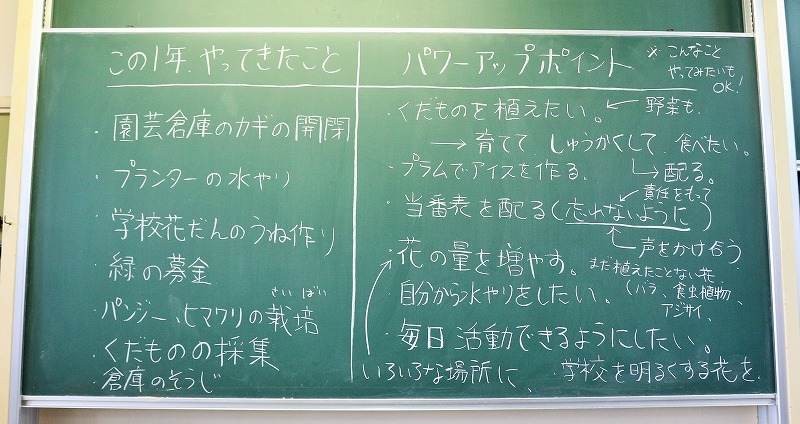 この1年、やってきたこと
・園芸倉庫のカギの開閉
・プランターの水やり
・学校花だんのうね作り
・緑の募金
さいばい
・パンジー、ヒマワリの栽培
・くだものの採集
・倉庫のそうじ
パワーアップポイント
※こんなこと
やってみたいも
OK!
・くだものを植えたい。← 野菜も
→ 育てて しゅうかくして 食べたい。
・プラムでアイスを作る。
↳配る。
責任をもって
・当番表を配る(忘れないように)
声をかけ合う
・花の量を増やす。
まだ植えたことない花
(バラ、食虫植物、
アジサイ、
・自分から水やりをしたい。
・毎日活動できるようにしたい。
いろいろな場所に、学校を明るくする花を